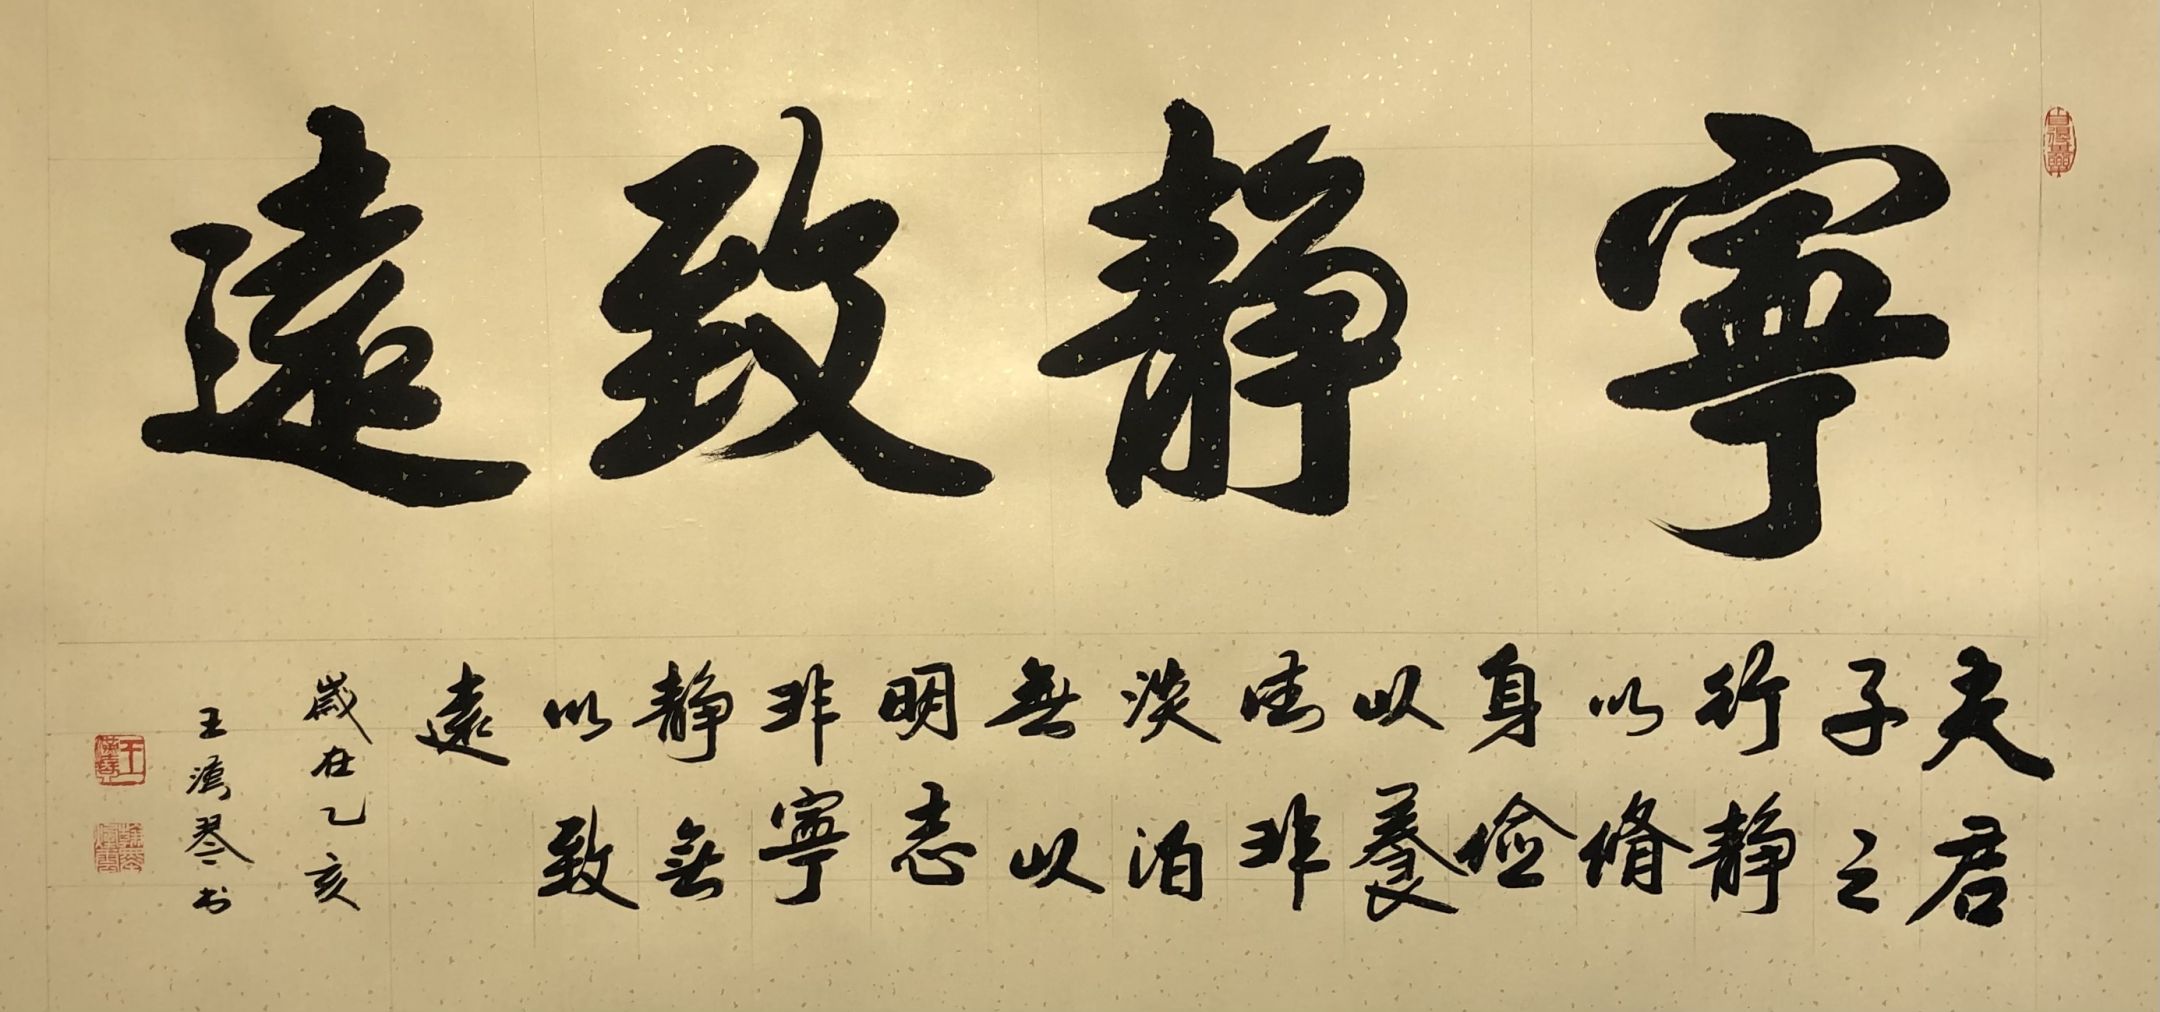 寧静致遠
夫君
子之
行静
以脩
身儉
以養
德非
淡泊
無以
明志
非寧
静無
以致
遠
歲在乙亥
王琴书